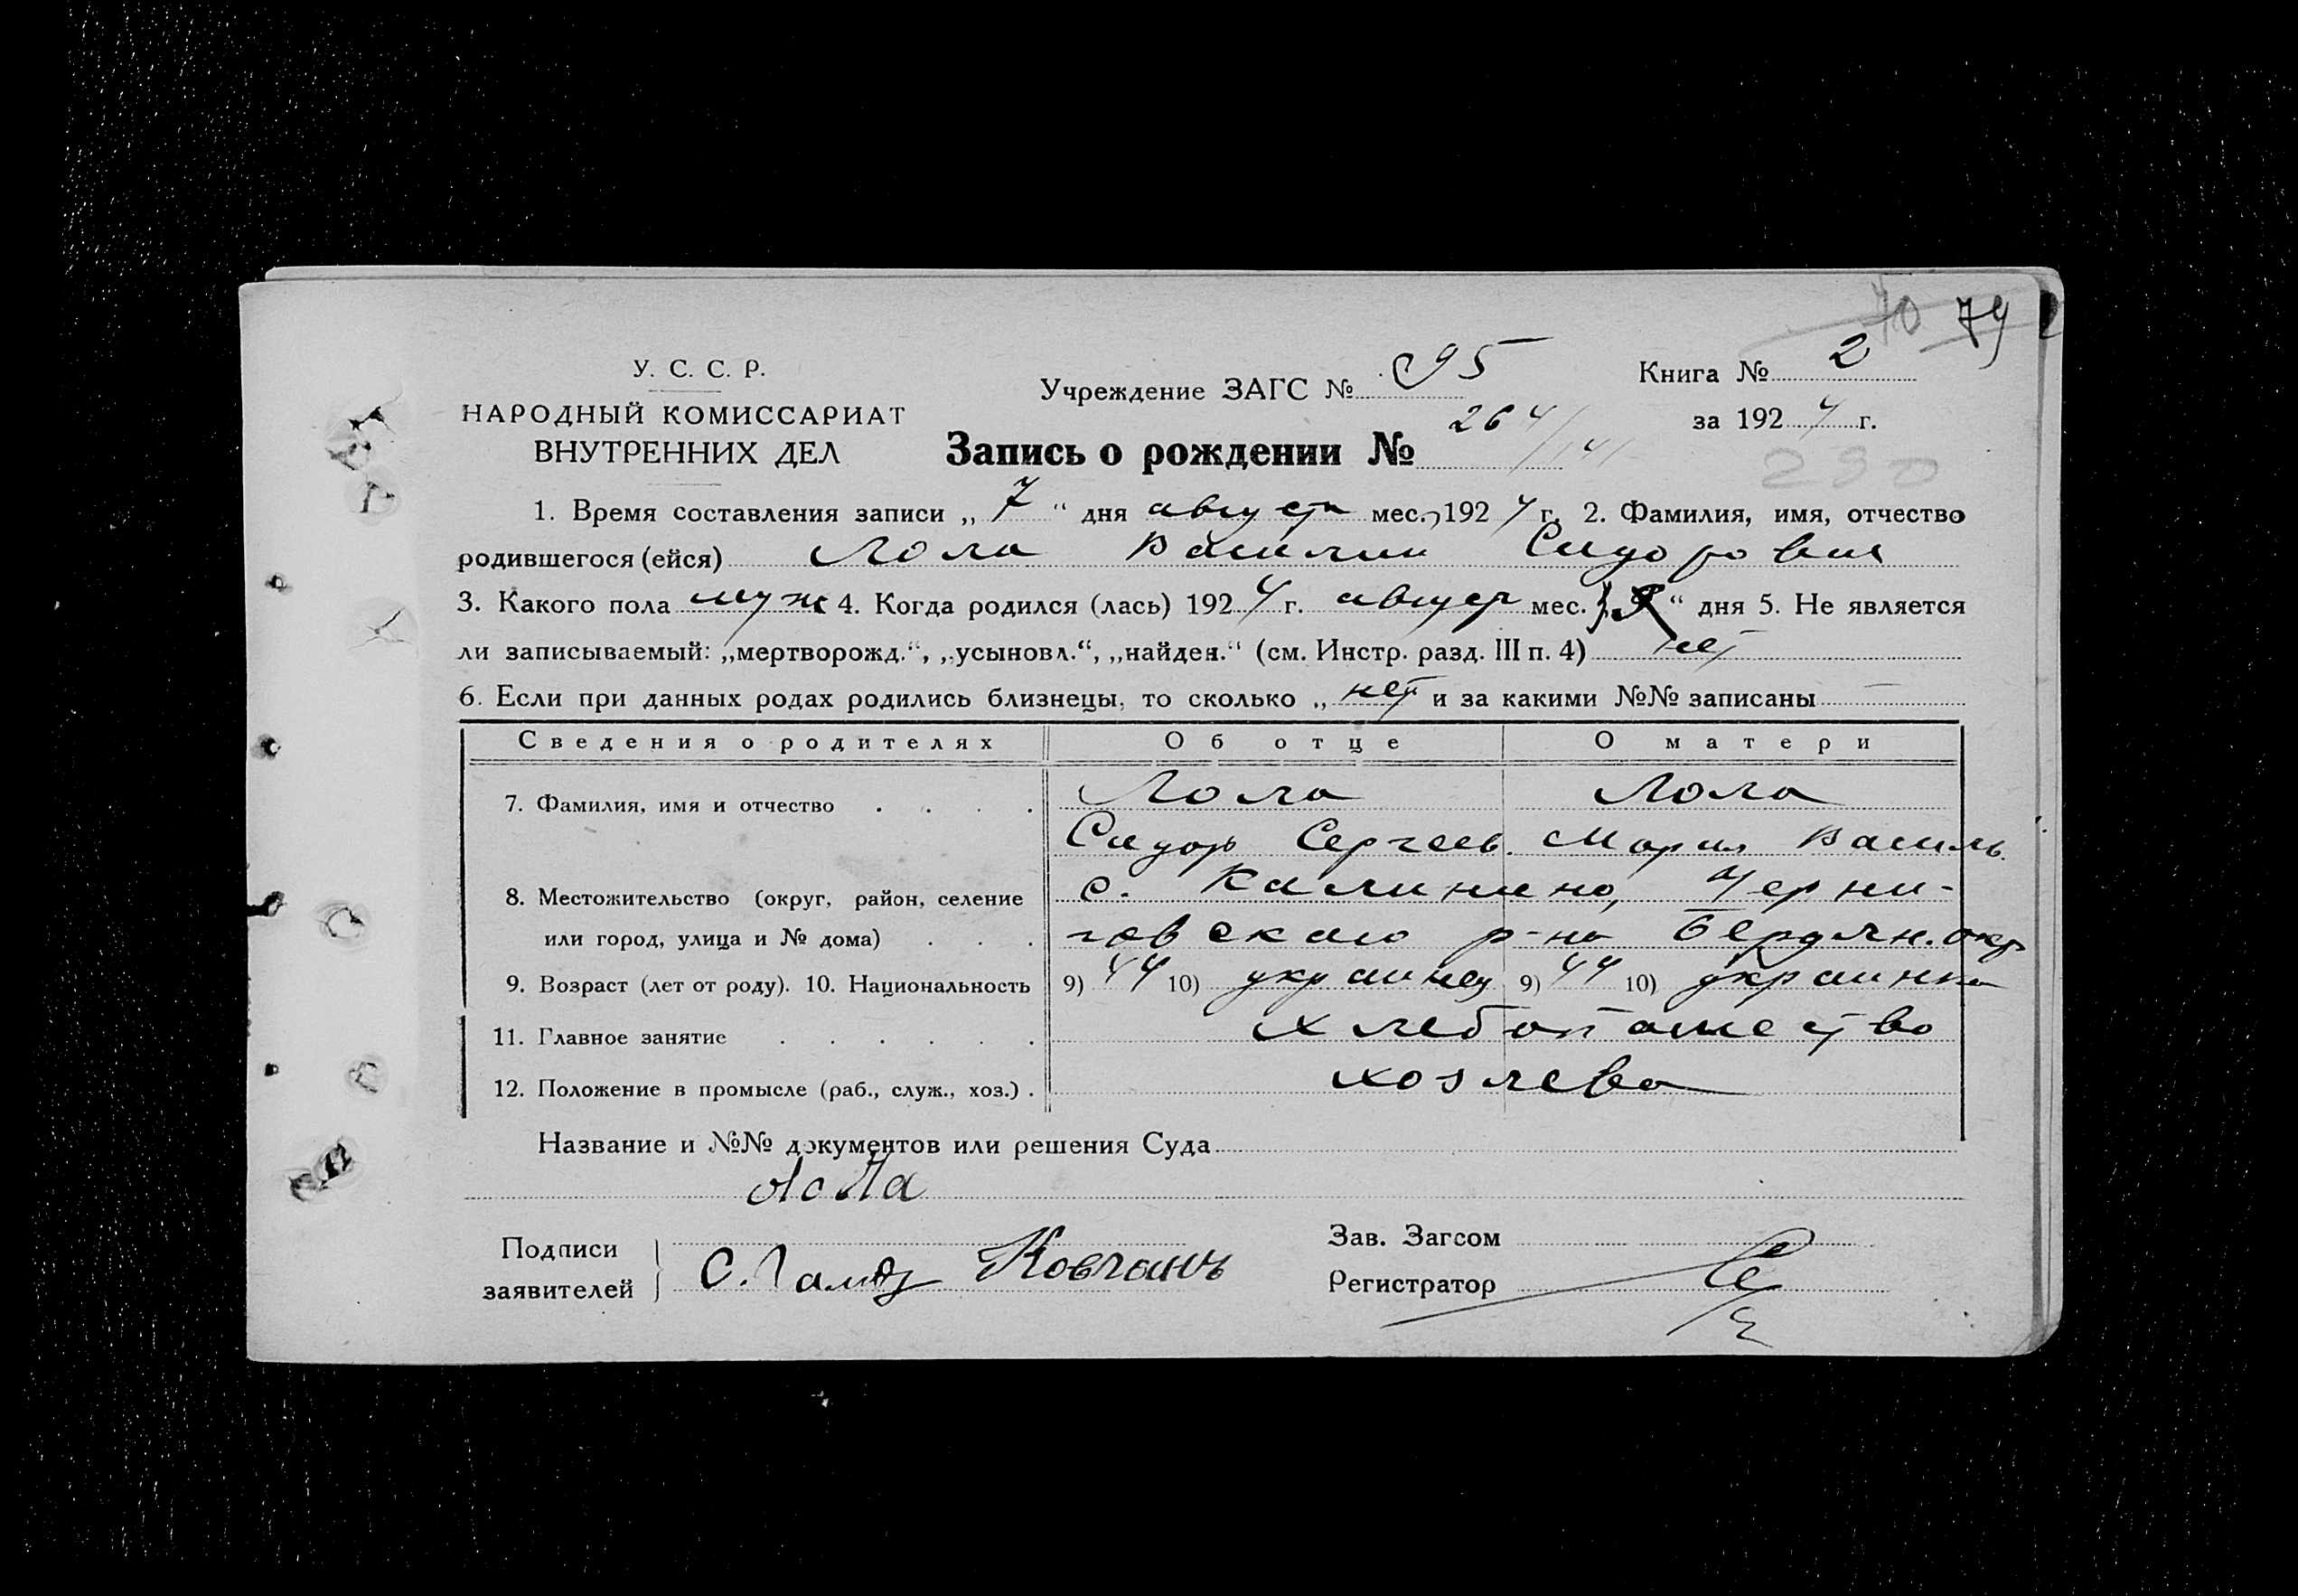 70 79
У. С. С. Р.
НАРОДНЫЙ КОМИССАРИАТ
ВНУТРЕННИХ ДЕЛ
Учреждение ЗАГС № 95
Книга № 2
за 192 4 г.
Запись о рождении № 264/141
230
1. Время составления записи „ 7 “ дня августа мес. 192 4 г. 2. Фамилия, имя, отчество
родившегося (ейся) Лола Василий Сидорович
3. Какого пола муж 4. Когда родился (лась) 192 4 г. август мес. “ дня 5. Не является
ли записываемый: „мертворожд.“, „усыновл.“, „найден.“ (см. Инстр. разд. III п. 4) нет
6. Если при данных родах родились близнецы, то сколько „ нет и за какими №№ записаны —
Сведения о родителях Об отце О матери
7. Фамилия, имя и отчество . . . . Лола Лола
Сидор Сергеев. Мария Василь.
8. Местожительство (округ, район, селение с. Калинино, Черни-
или город, улица и № дома) . . . говского р-на Бердян. окр
9. Возраст (лет от роду). 10. Национальность 9) 44 10) украинец 9) 44 10) украинка
11. Главное занятие . . . . . . хлебопашество
12. Положение в промысле (раб., служ., хоз.) . хозяева
Название и №№ документов или решения Суда
Лола
Подписи
заявителей
С. Ковганъ
Зав. Загсом
Регистратор